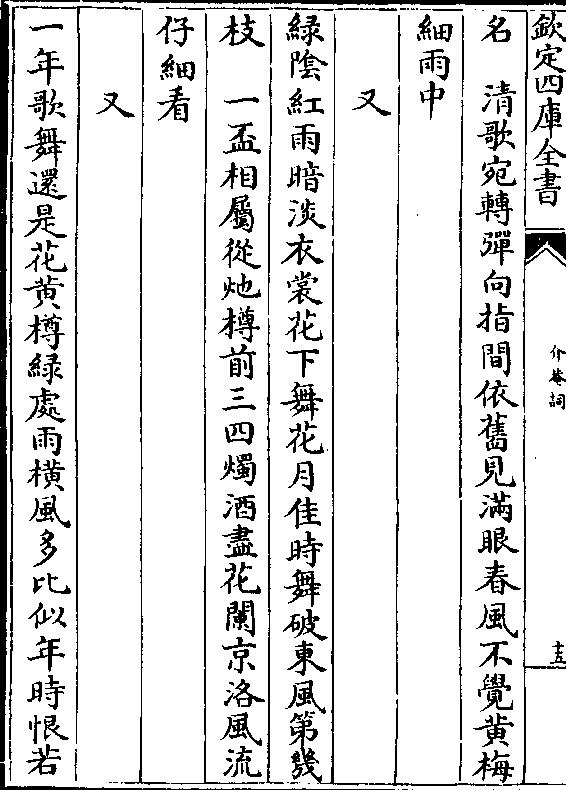 欽定四庫全書
介菴詞
十五
名　清歌宛轉彈向指間依舊見滿眼春風不覺黄梅
細雨中
又
綠陰紅雨暗淡衣裳花下舞花月佳時舞破東風第幾
枝　一盃相屬從灺樽前三四燭酒盡花闌京洛風流
仔細看
又
一年歌舞還是花黄樽綠處雨横風多比似年時恨若